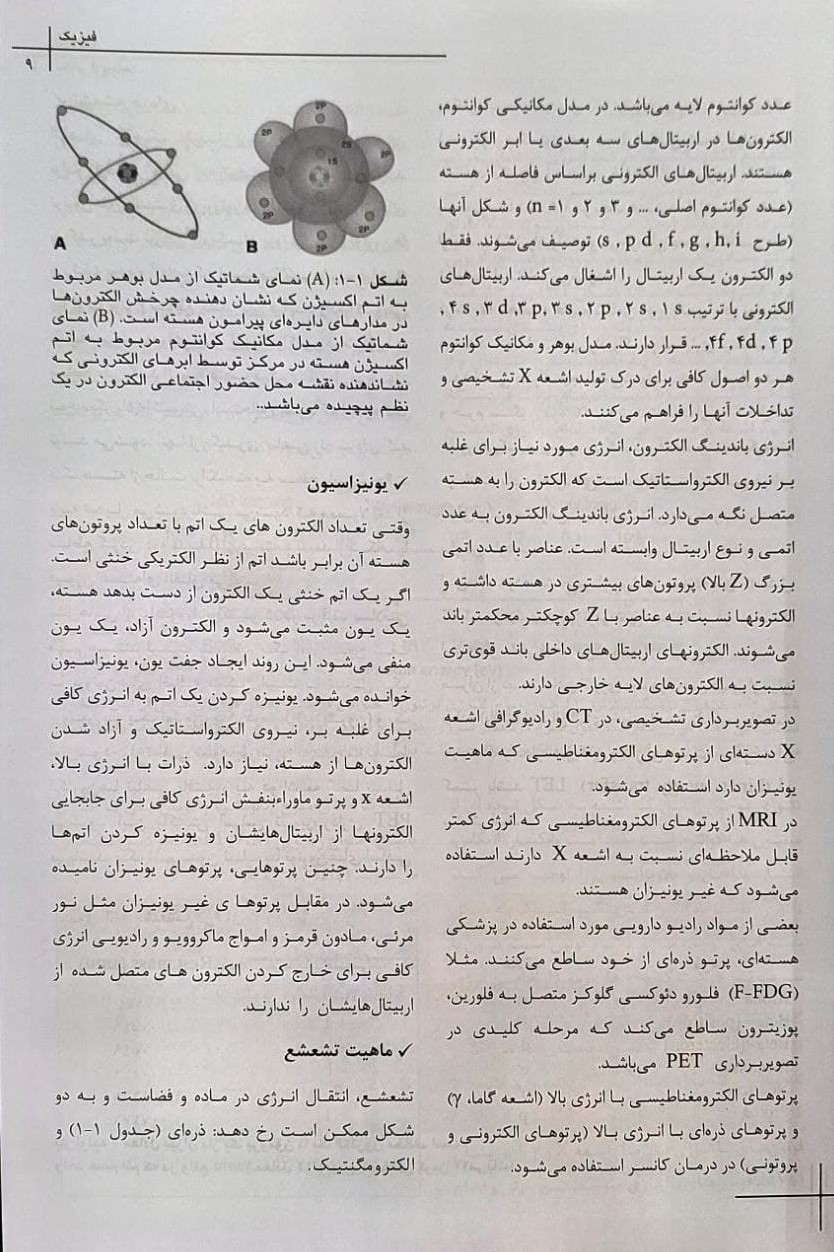 فیزیک
۹
عدد کوانتوم لایه می‌باشد. در مدل مکانیکی کوانتوم،
الکترون‌ها در اربیتال‌های سه بعدی یا ابر الکترونی
هستند. اربیتال‌های الکترونی براساس فاصله از هسته
(عدد کوانتوم اصلی، ... و ۳ و ۲ و ۱= n) و شکل آنها
(طرح s , p d , f , g , h, i) توصیف می‌شوند. فقط
دو الکترون یک اربیتال را اشغال می‌کند. اربیتال‌های
الکترونی با ترتیب ۱s , ۲s , ۲p , ۳s ,۳p, ۳d , ۴s ,
۴p , ۴d , ۴f, ... قرار دارند. مدل بوهر و مکانیک کوانتوم
هر دو اصول کافی برای درک تولید اشعه X تشخیصی و
تداخلات آنها را فراهم می‌کنند.
انرژی باندینگ الکترون، انرژی مورد نیاز برای غلبه
بر نیروی الکترواستاتیک است که الکترون را به هسته
متصل نگه می‌دارد. انرژی باندینگ الکترون به عدد
اتمی و نوع اربیتال وابسته است. عناصر با عدد اتمی
بزرگ (Z بالا) پروتون‌های بیشتری در هسته داشته و
الکترونها نسبت به عناصر با Z کوچکتر محکمتر باند
می‌شوند. الکترونهای اربیتال‌های داخلی باند قوی‌تری
نسبت به الکترون‌های لایه خارجی دارند.
در تصویربرداری تشخیصی، در CT و رادیوگرافی اشعه
X دسته‌ای از پرتوهای الکترومغناطیسی که ماهیت
یونیزان دارد استفاده می‌شود.
در MRI از پرتوهای الکترومغناطیسی که انرژی کمتر
قابل ملاحظه‌ای نسبت به اشعه X دارند استفاده
می‌شود که غیر یونیزان هستند.
بعضی از مواد رادیو دارویی مورد استفاده در پزشکی
هسته‌ای، پرتو ذره‌ای از خود ساطع می‌کنند. مثلا
(F-FDG) فلورو دئوکسی گلوکز متصل به فلورین،
پوزیترون ساطع می‌کند که مرحله کلیدی در
تصویربرداری PET می‌باشد.
پرتوهای الکترومغناطیسی با انرژی بالا (اشعه گاما، γ)
و پرتوهای ذره‌ای با انرژی بالا (پرتوهای الکترونی و
پروتونی) در درمان کانسر استفاده می‌شود.
2P
2P
2P
2S
1S
2P
2P
2P
A
B
شکل ۱-۱: (A) نمای شماتیک از مدل بوهر مربوط
به اتم اکسیژن که نشان دهنده چرخش الکترون‌ها
در مدارهای دایره‌ای پیرامون هسته است. (B) نمای
شماتیک از مدل مکانیک کوانتوم مربوط به اتم
اکسیژن هسته در مرکز توسط ابرهای الکترونی که
نشاندهنده نقشه محل حضور اجتماعی الکترون در یک
نظم پیچیده می‌باشد..
✓ یونیزاسیون
وقتی تعداد الکترون های یک اتم با تعداد پروتون‌های
هسته آن برابر باشد اتم از نظر الکتریکی خنثی است.
اگر یک اتم خنثی یک الکترون از دست بدهد هسته،
یک یون مثبت می‌شود و الکترون آزاد، یک یون
منفی می‌شود. این روند ایجاد جفت یون، یونیزاسیون
خوانده می‌شود. یونیزه کردن یک اتم به انرژی کافی
برای غلبه بر، نیروی الکترواستاتیک و آزاد شدن
الکترون‌ها از هسته، نیاز دارد. ذرات با انرژی بالا،
اشعه x و پرتو ماوراءبنفش انرژی کافی برای جابجایی
الکترونها از اربیتال‌هایشان و یونیزه کردن اتم‌ها
را دارند. چنین پرتوهایی، پرتوهای یونیزان نامیده
می‌شود. در مقابل پرتوها ی غیر یونیزان مثل نور
مرئی، مادون قرمز و امواج ماکروویو و رادیویی انرژی
کافی برای خارج کردن الکترون های متصل شده از
اربیتال‌هایشان را ندارند.
✓ ماهیت تشعشع
تشعشع، انتقال انرژی در ماده و فضاست و به دو
شکل ممکن است رخ دهد: ذره‌ای (جدول ۱-۱) و
الکترومگنتیک.